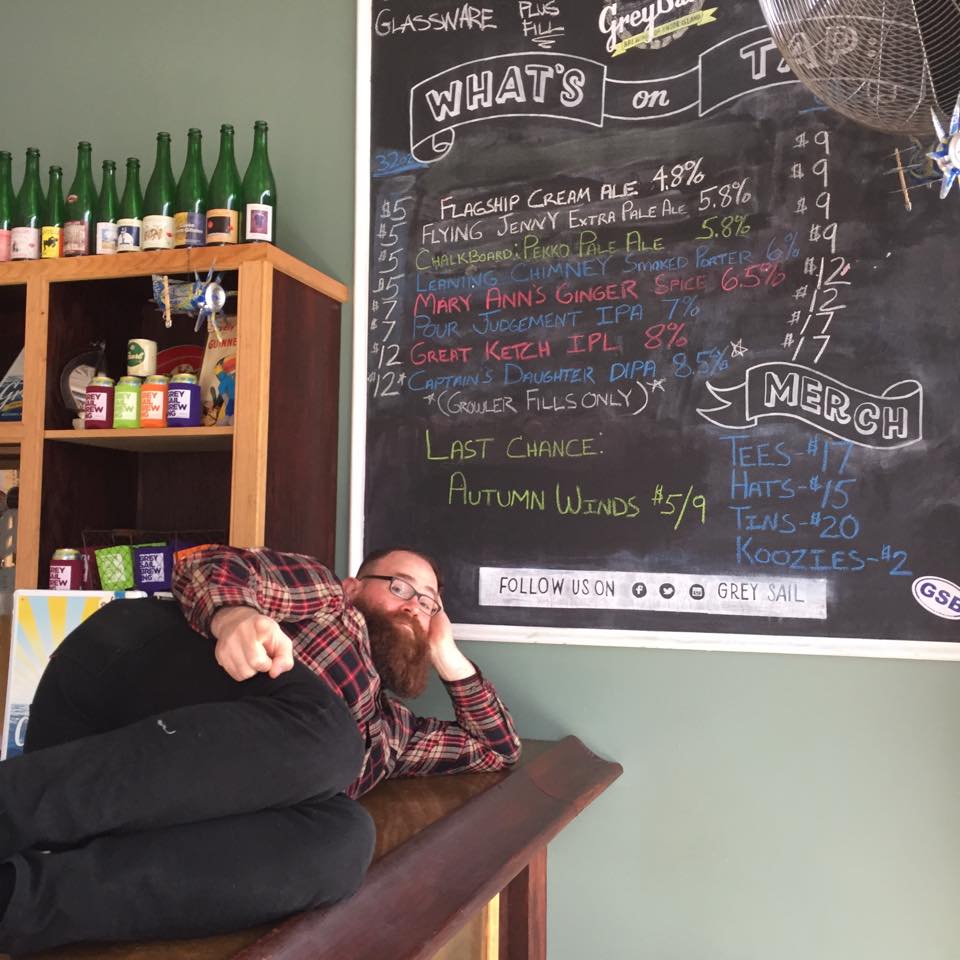 GLASSWARE PLUS FILL
GreySail
BREWING OF RHODE ISLAND
WHAT'S on TAP
32oz
$5 FLAGSHIP CREAM ALE 4.8% $9
$5 FLYING JENNY EXTRA PALE ALE 5.8% $9
$5 CHALKBOARD: PEKKO PALE ALE 5.8% $9
$5 LEANING CHIMNEY SMOKED PORTER 6% $9
$7 MARY ANN'S GINGER SPICE 6.5% $12
$7 POUR JUDGEMENT IPA 7% $12
$12 GREAT KETCH IPL 8% $17
$12* CAPTAIN'S DAUGHTER DIPA 8.5%* $17
*(GROWLER FILLS ONLY)*
MERCH
LAST CHANCE:
AUTUMN WINDS $5/9
TEES-$17
HATS-$15
TINS-$20
KOOZIES-$2
FOLLOW US ON GREY SAIL
GSB
GUINNESS
GREY SAIL BREW ING
GREY SAIL BREW ING